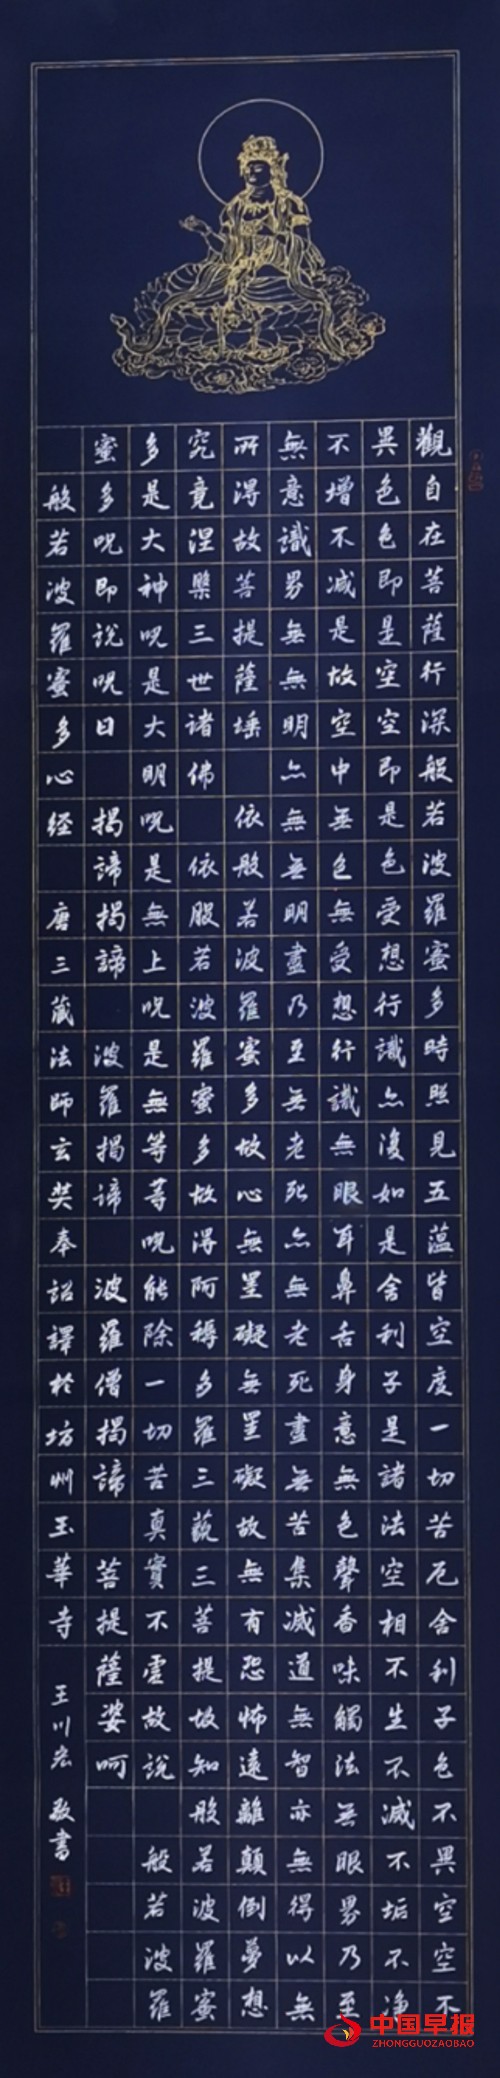 觀自在菩薩行深般若波羅蜜多時照見五蘊皆空度一切苦厄舍利子色不異空空不
異色色即是空空即是色受想行識亦復如是舍利子是諸法空相不生不滅不垢不净
不增不減是故空中無色無受想行識無眼耳鼻舌身意無色聲香味觸法無眼界乃至
無意識界無無明亦無無明盡乃至無老死亦無老死盡無苦集滅道無智亦無得以無
所得故菩提薩埵 依般若波羅蜜多故心無罣礙無罣礙故無有恐怖遠離顛倒夢想
究竟涅槃三世諸佛 依般若波羅蜜多故得阿耨多羅三藐三菩提故知般若波羅蜜
多是大神呪是大明呪是無上呪是無等等呪能除一切苦真實不虛故說 般若波羅
蜜多呪即說呪曰 揭諦揭諦 波羅揭諦 波羅僧揭諦 菩提薩婆呵
般若波羅蜜多心经 唐三藏法師玄奘奉詔譯於坊州玉華寺 王川宏敬書
中国早报
ZHONGGUOZAOBAO